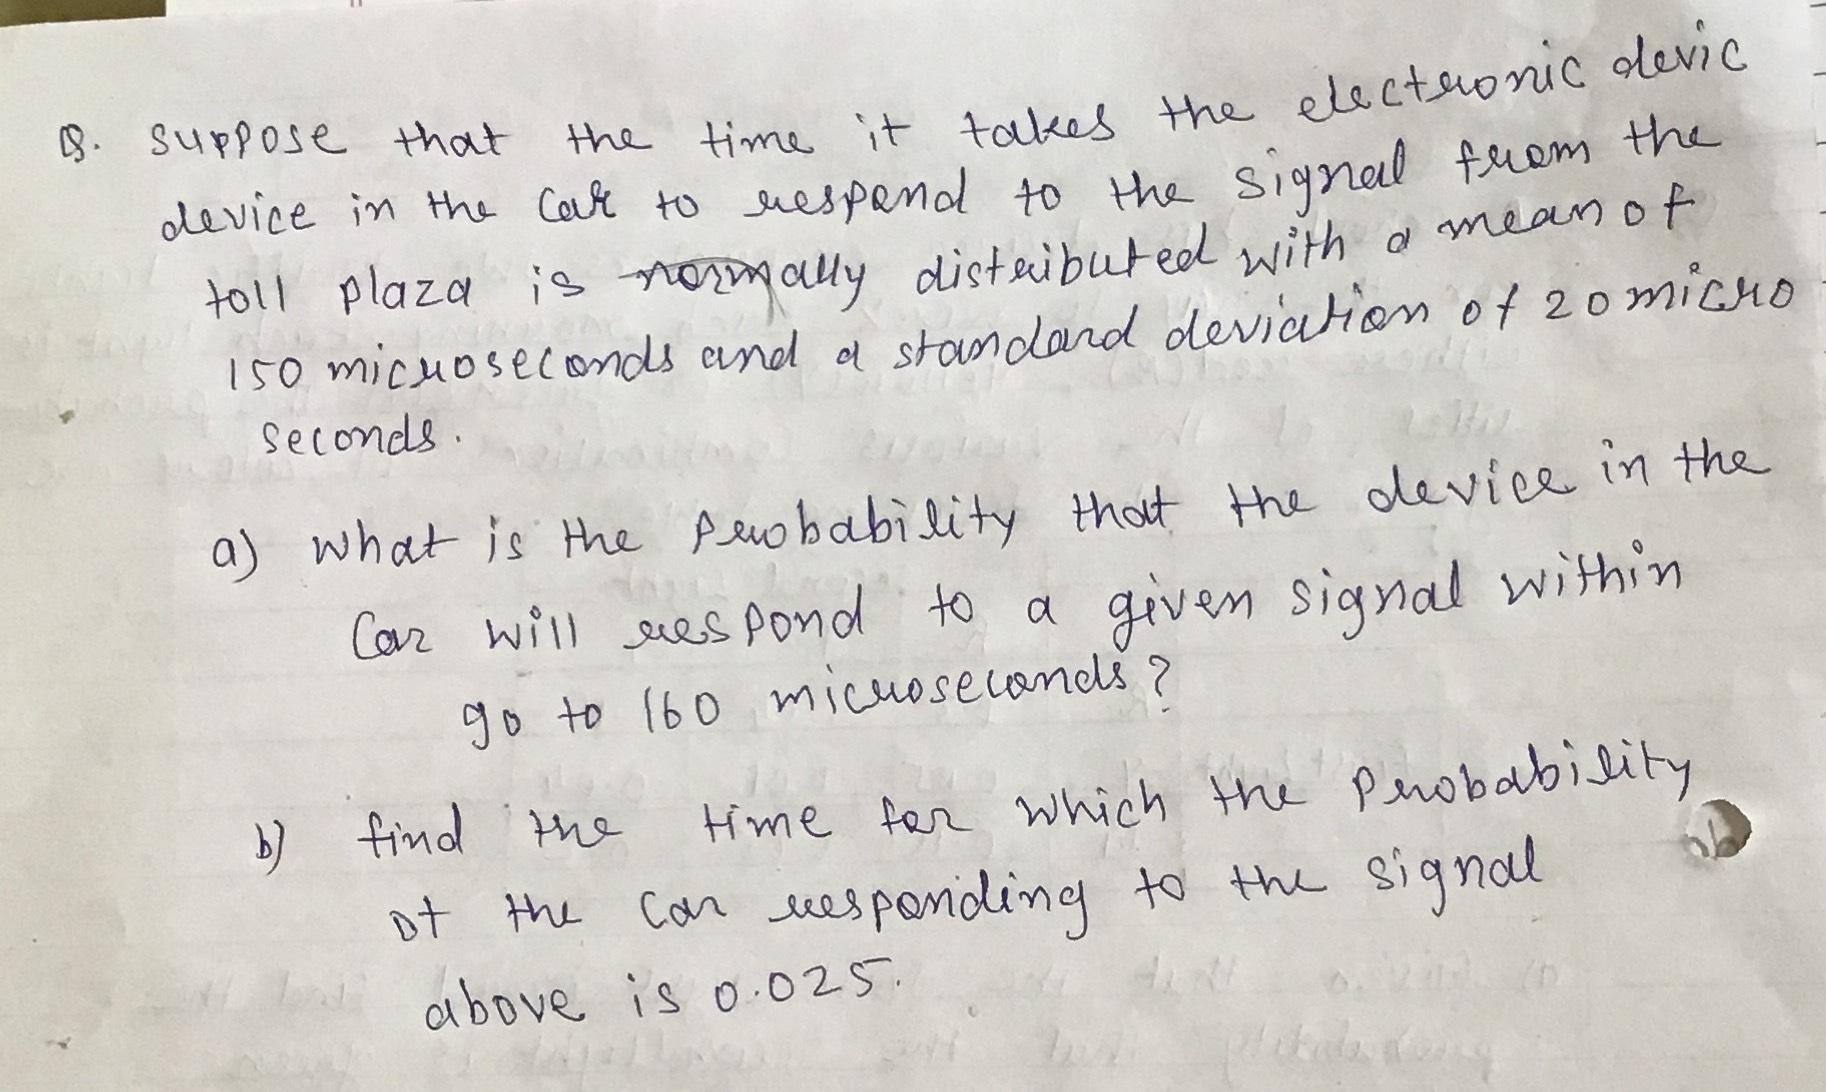 Q. suppose that the time it takes the electronic devic
device in the car to respond to the signal from the
toll plaza is normally distributed with a mean of
150 microseconds and a standard deviation of 20 micro
seconds.
a) what is the probability that the device in the
Car will respond to a given signal within
90 to 160 microseconds?
b) find the time for which the probability
of the car responding to the signal
above is 0.025.